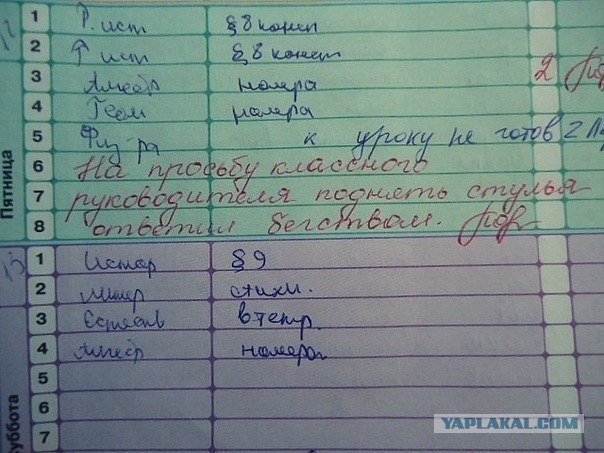 12
Пятница
1 Р. ист § 8 консп
2 Р ист § 8 конспт
3 Алгебр номера 2
4 Геом номера
5 Физ ра к уроку не готов 2
6 На просьбу классного
7 руководителя поднять стулья
8 ответил бегством.
13
Суббота
1 Истор § 9
2 Литер стихи.
3 Естеств в тетр.
4 Алгебр номера
5
6
7
YAPLAKAL.COM